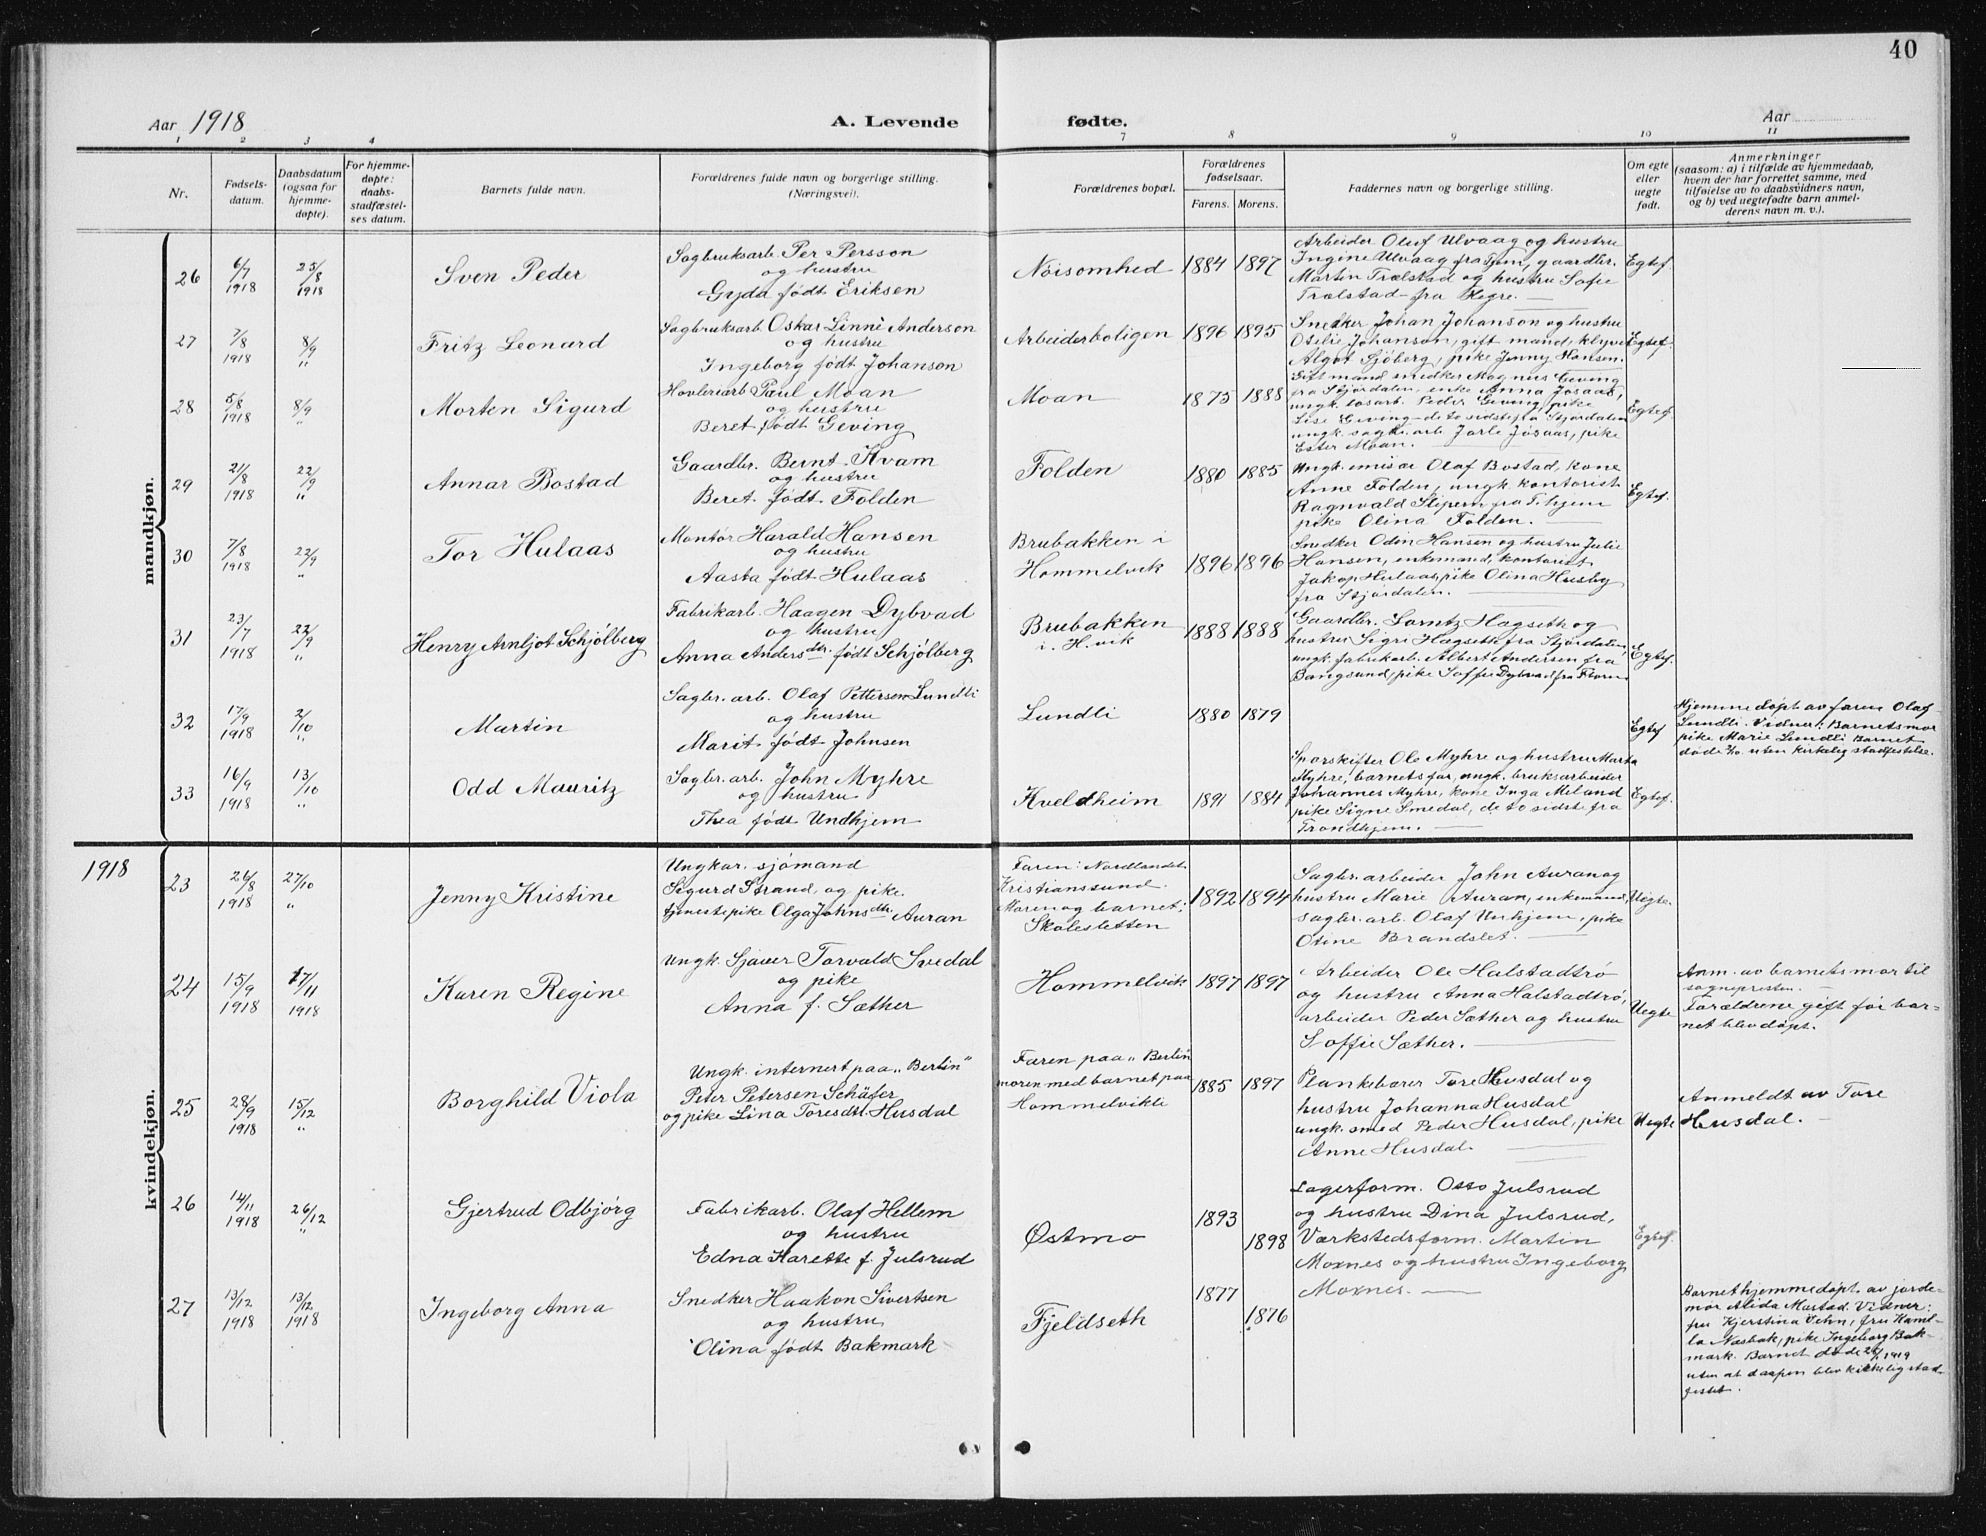 40
Aar 1918
A. Levende
fødte.
Aar
1 2 3 4 7 8 9 10 11
Nr.
Fødsels-
datum.
Daabsdatum
(ogsaa for
hjemme-
døpte).
For hjemme-
døpte:
daabs-
stadfæstel-
ses datum.
Barnets fulde navn.
Forældrenes fulde navn og borgerlige stilling.
(Næringsvei).
Forældrenes bopæl.
Forældrenes
fødselsaar.
Farens. Morens.
Faddernes navn og borgerlige stilling.
Om egte
eller
uegte
født.
Anmerkninger
(saasom: a) i tilfælde av hjemmedaab,
hvem der har forrettet samme, med
tilføielse av to daabsvidners navn,
og b) ved uegtefødte barn anmel-
derens navn m. v.).
mandkjøn.
26
6/7
1918
25/8
1918
Sven Peder
Sagbruksarb. Per Persson
og hustru
Gyda født Eriksen
Nøisomhed
1884 1897
Arbeider Oluf Ulvaag og hustru
Ingine Ulvaag fra Tjem, gaardbr.
Martin Trælstad og hustru Sofie
Trælstad fra Hegre.
Egtef.
27
7/8
1918
8/9
"
Fritz Leonard
Sagbruksarb. Oskar Linnè Anderson
og hustru
Ingeborg født Johanson
Arbeiderboligen
1896 1895
Snedker Johan Johanson og hustru
Otilie Johanson, gift mand, klyver
Algot Sjöberg, pike Jenny Hansen.
Egtef.
28
5/8
1918
8/9
"
Morten Sigurd
Hovleriarb. Paul Moan
og hustru
Beret født Geving
Moan
1875 1888
Gift mand snedker Magnus Geving
fra Stjørdalen, enke Anna Jøsaas,
ungk. løsarb. Peder Geving, pike
Lise Geving - de to sidste fra Stjørdalen
ungk. sagbr. arb. Jarle Jøsaas, pike
Ester Moan.
Egtef.
29
21/8
1918
22/9
"
Annar Bostad
Gaardbr. Bernt Kvam
og hustru
Beret født Folden
Folden
1880 1885
Ungk. emisær Olaf Bostad, kone
Anne Folden, ungk. kontorist
Ragnvald Stipern fra T.hjem
pike Olina Folden.
Egtef.
30
7/8
1918
22/9
"
Tor Hulaas
Montør Harald Hansen
og hustru
Aasta født Hulaas
Brubakken i
Hommelvik
1896 1896
Snedker Odin Hansen og hustru Julie
Hansen, enkemand, kontorist
Jakop Hulaas, pike Olina Husby
fra Stjørdalen.
31
23/7
1918
22/9
"
Henry Arnljot Schjølberg
Fabrikarb. Haagen Dybvad
og hustru
Anna Andersdtr. født Schjølberg
Brubakken
i. H.vik
1888 1888
Gaardbr. Lorntz Hagseth og
hustru Sigri Hagseth fra Stjørdalen,
ungk. fabrikarb. Albert Andersen fra
Bangsund, pike Soffie Dybvad fra
Egtef.
32
17/9
1918
2/10
"
Martin
Sagbr. arb. Olaf Pettersen Lundli
og hustru
Marit født Johnsen
Lundli
1880 1879
Egtef
Hjemmedøpt av faren Olaf
Lundli. Vidner: Barnets mor
pike Marie Lundli Barnet
døde uten kirkelig stadfestelse.
33
16/9
1918
13/10
"
Odd Mauritz
Sagbr. arb. John Myhre
og hustru
Thea født Undhjem
Kveldheim
1891 1884
Sporskifter Ole Myhre og hustru Marta
Myhre, barnets far, ungk. bruksarbeider
Johannes Myhre, kone Inga Meland
pike Signe Smedal, de to sidste fra
Trondhjem.
Egtef.
1918
kvindekjøn.
23
26/8
1918
27/10
"
Jenny Kristine
Ungkar. sjømand
Sigurd Strand, og pike.
tjenestepike Olga Johnsdtr. Auran
Faren: Nordlandet
Kristianssund.
Moren og barnet:
Skolesletten
1892 1894
Sagbr. arbeider John Auran og
hustru Marie Auran, enkemand,
sagbr. arb. Olaf Unhjem, pike
Otine Brandslet.
Uegte.
24
15/9
1918
17/11
1918
Karen Regine
Ungk. Sjauer Torvald Svedal
og pike
Anna f. Sæther
Hommelvik
1897 1897
Arbeider Ole Halstadtrø
og hustru Anna Halstadtrø,
arbeider Peder Sæther og hustru
Soffie Sæther.
Uegte
Anm. av barnets mor til
sognepresten.
Forældrene gift før bar-
net blev døpt.
25
28/9
1918
15/12
"
Borghild Viola
Ungk. internert paa „Berlin"
Peter Petersen Schäfer
og pike Lina Toresdtr. Husdal
Faren paa „Berlin"
moren med barnet paa
Hommelvikli
1885 1897
Plankebærer Tore Husdal og
hustru Johanna Husdal
ungk. smed Peder Husdal, pike
Anne Husdal.
Uegte
Anmeldt av Tore
Husdal.
26
14/11
1918
26/12
"
Gjertrud Odbjørg
Fabrikarb. Olaf Hellem
og hustru
Edna Harette f. Julsrud
Østmo
1893
1898
Lagerform. Otto Julsrud
og hustru Dina Julsrud,
Værkstedsform. Martin
Moxnes og hustru Ingeborg
Moxnes.
Egtef.
27
13/12
1918
13/12
1918
Ingeborg Anna
Snedker Haakon Sivertsen
og hustru
Olina født Bakmark
Fjeldseth
1877
1876
Barnet hjemmedøpt av jorde-
mor Alida Marstad. Vidner:
fru Kjerstina Vehn, fru Hamil-
la Næsbak, pike Ingeborg Bak-
mark. Barnet døde 1919
uten at daapen blev kirkelig stad-
festet.